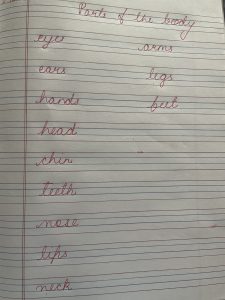 Parts of the body
eyes
ears
hands
head
chin
teeth
nose
lips
neck
arms
legs
feet